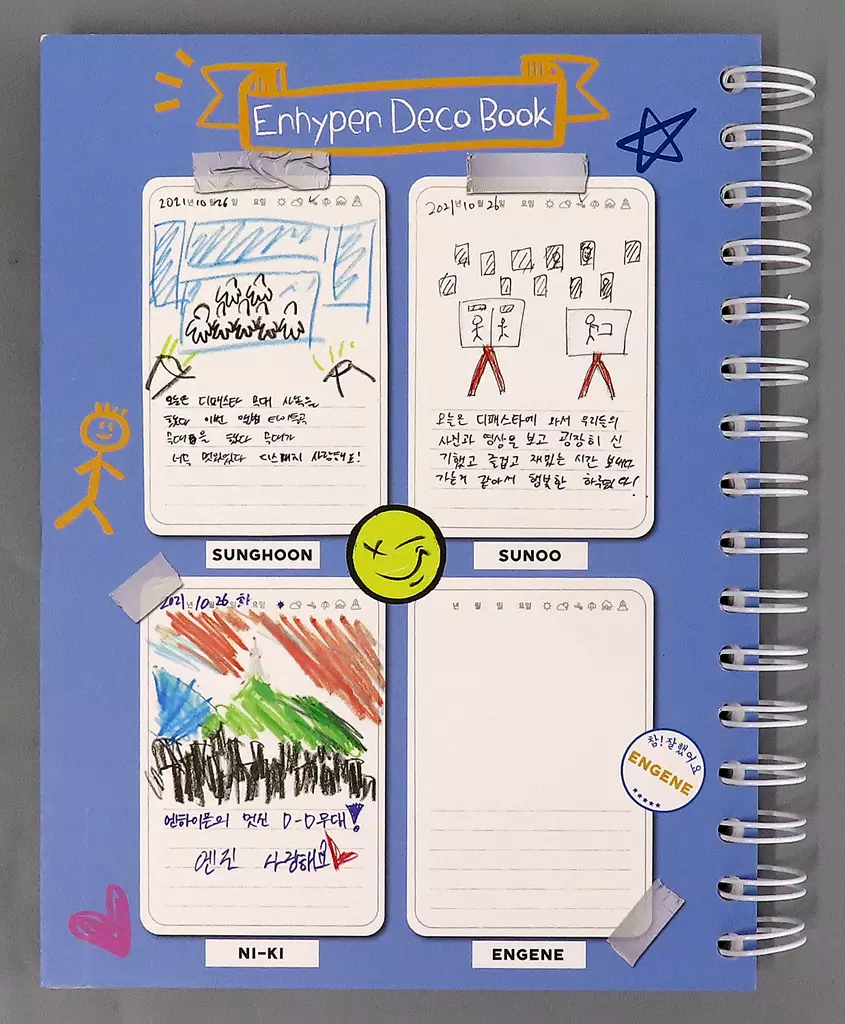 Enhypen Deco Book
2021년 10월 26일 요일
오늘은 디페스타 무대 사녹을
했다 이번 앨범 타이틀곡
무대을 했다 무대가
너무 멋있었다 디스패치 사랑해요!
SUNGHOON
2021년 10월 26일 요일
오늘은 디패스타에 와서 우리들의
사진과 영상을 보고 굉장히 신
기했고 즐겁고 재밌는 시간 보내다
가는거 같아서 행복한 하루였다!
SUNOO
2021년 10월 26일 화요일
엔하이픈의 멋진 D-D무대!
엔진 사랑해요
NI-KI
년 월 일 요일
참!잘했어요
ENGENE
ENGENE